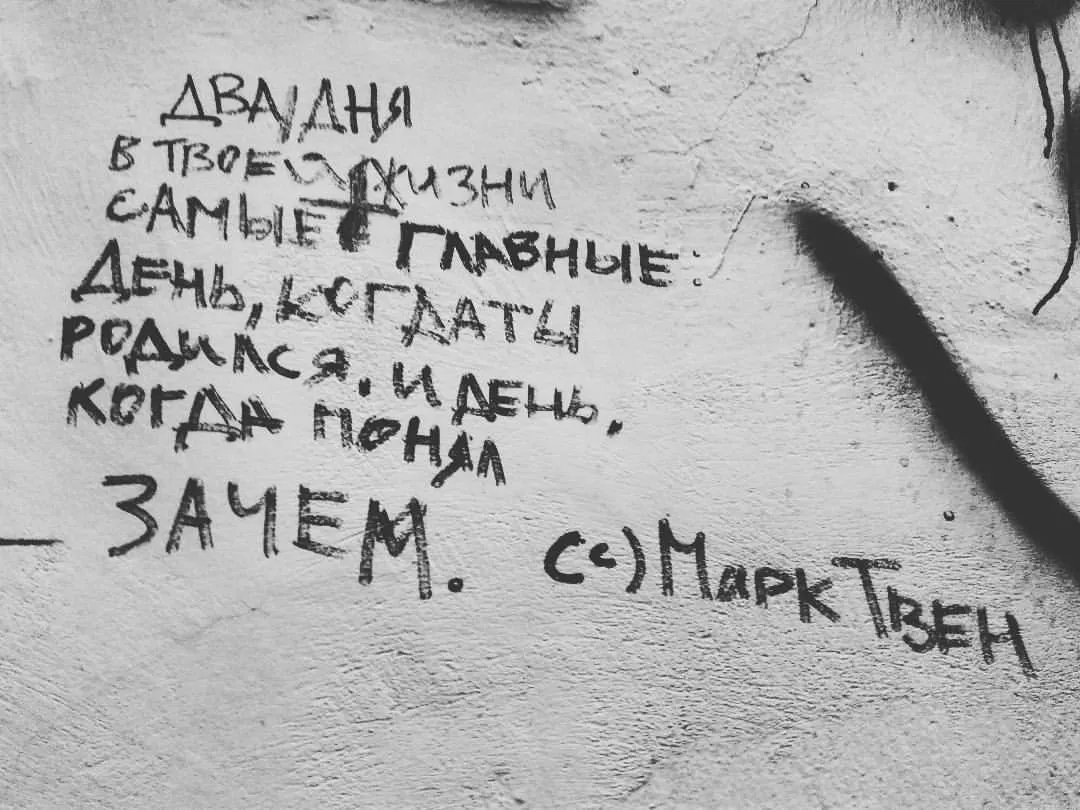 ДВА ДНЯ
В ТВОЕЙ ЖИЗНИ
САМЫЕ ГЛАВНЫЕ:
ДЕНЬ, КОГДА ТЫ
РОДИЛСЯ, И ДЕНЬ,
КОГДА ПОНЯЛ
ЗАЧЕМ.
(с) Марк Твен